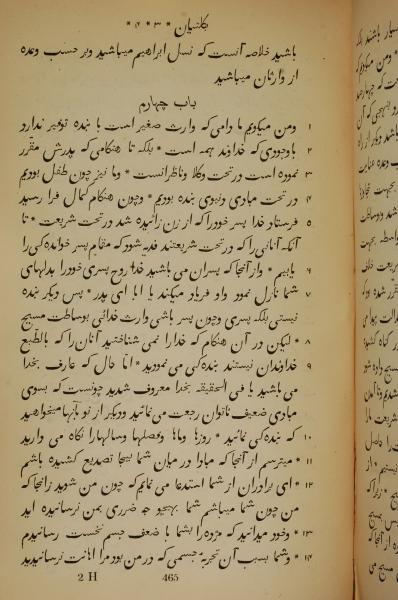 گلتیان * ۳ * ۴ *
باشید خلاصه آنست که نسل ابراهیم میباشید وبر حسب وعده
از وارثان میباشید
باب چهارم
۱ ومن میگویم ما دامی که وارث صغیر است با بنده توفیر ندارد
۲ باوجودی که خداوند همه است * بلکه تا هنگامی که پدرش مقرر
۳ نموده است در تحت وکلا وناظرانست * وما نیز چون طفل بودیم
۴ در تحت مبادی دنیوی بنده بودیم * وچون هنگام کمال فرا رسید
۵ فرستاد خدا پسر خودرا که از زن زائیده شد در تحت شریعت * تا
آنکه آنانی را که در تحت شریعتند فدیه شود که مقام پسر خواندگی را
۶ یابیم * واز آنجا که پسران می باشید خدا روح پسری خودرا بدلهای
۷ شما نازل نمود واو فریاد میکند یا ابا ای پدر * پس دیگر بنده
نیستی بلکه پسری وچون پسر باشی وارث خدائی بوساطت مسیح
۸ * لیکن در آن هنگام که خدا را نمی شناختید آنان را که بالطبع
۹ خداوندان نیستند بندگی می نمودید * اما حال که عارف بخدا
می باشید یا فی الحقیقه بخدا معروف شدید چونست که بسوی
مبادی ضعیف ناتوان رجعت می نمائید ودیگر از نو بآنها میخواهید
۱۰ که بندگی نمائید * روزها وماها وفصلها وسالهارا نگاه می دارید
۱۱ * میترسم از آنجا که مبادا در میان شما بیجا تصدیع کشیده باشم
۱۲ * ای برادران از شما استدعا می نمایم که چون من شوید زآنجا که
من چون شما میباشم شما بهیچ وجه ضرری بمن نرسانیده اید
۱۳ * وخود میدانید که مژده را بشما با ضعف جسم نخست رسانیدم
۱۴ * وشما بسبب آن تجربهٔ جسمی که در من بود مرا اهانت نرسانیدید
2 H 465